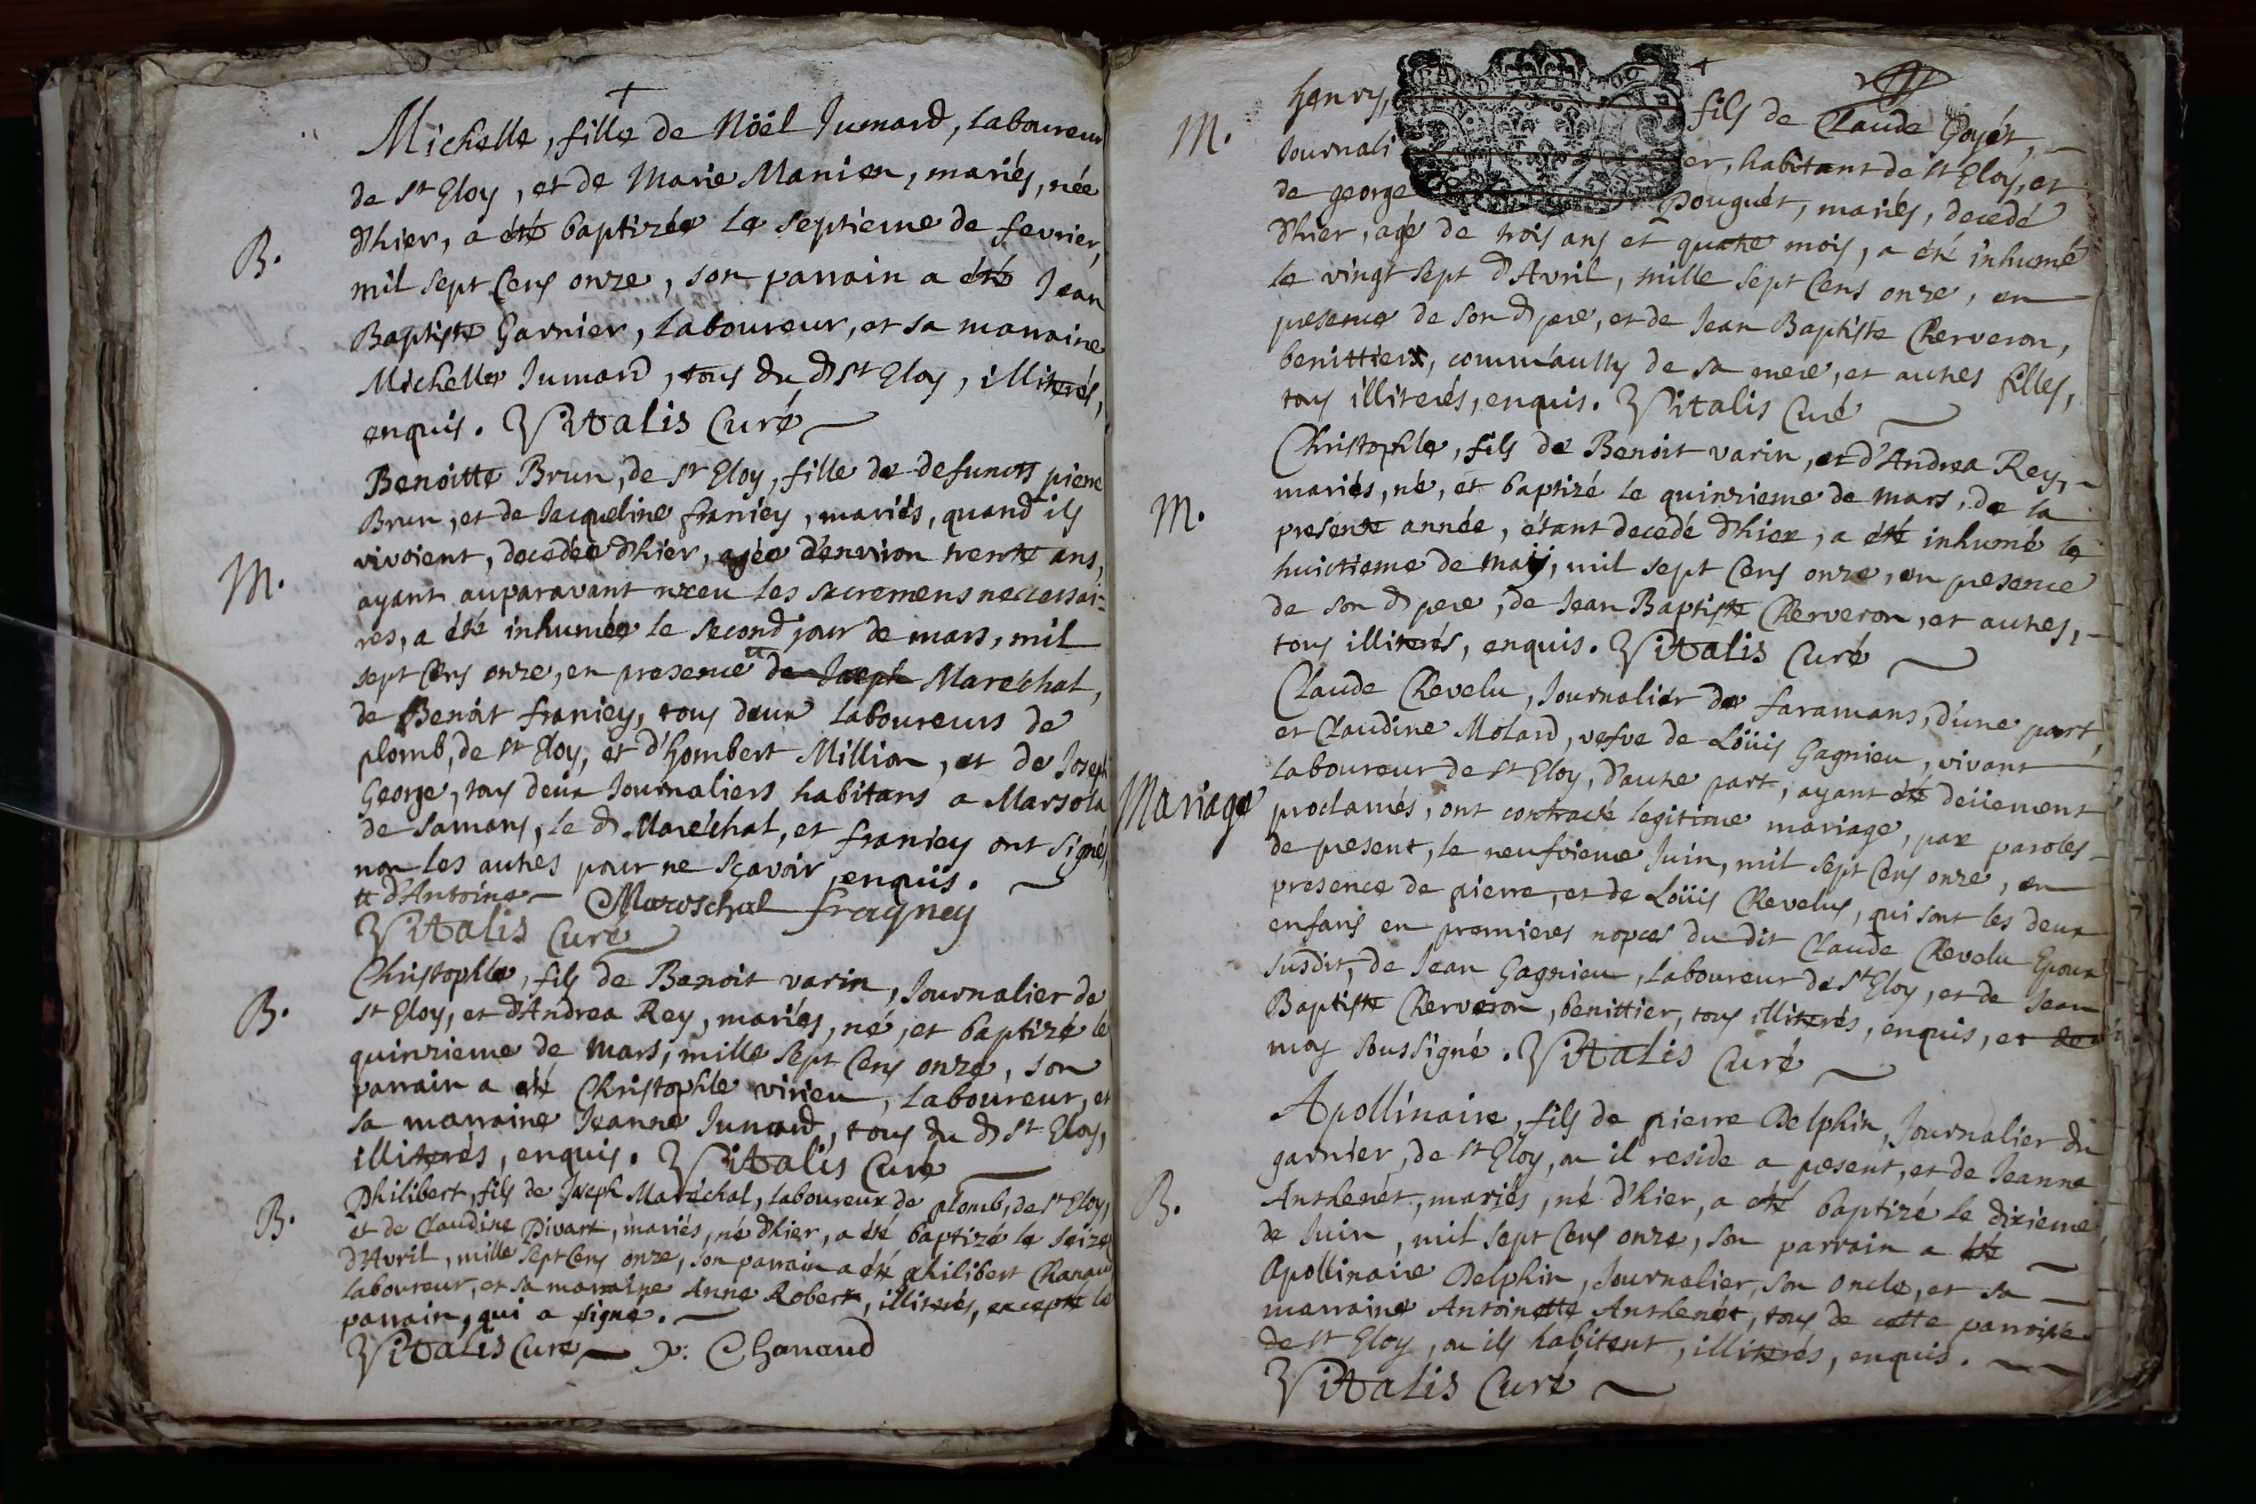 Michelle, fille de Nöel Jumard, laboureur
de st Eloy, et de Marie Manien, mariés, née
d'hier, a été baptizée le septieme de fevrier,
B.
mil sept Cens onze, son parrain a été Jean
Baptiste Garnier, laboureur, et sa marraine
Michelle Jumard, tous du d st Eloy, illiterés,
enquis. Vitalis Curé
Benoitte Brun, de st Eloy, fille de defuncts pierre
Brun, et de Jacqueline franiéy, mariés, quand ils
vivoient, decedée d'hier, agée d'environ trente ans,
M.
ayant auparavant receu les sacremens necessai=
res, a été inhumée le second jour de mars, mil
sept Cens onze, en presence de Joseph Maréchal,
de Benoit franiey, tous deux laboureurs de
plomb, de st Eloy, et d'hombert Million, et de Joseph
George, tous deux Journaliers habitans a Marsola
de Samans, le d Maréchal, et franiey ont signé,
non les autres pour ne sçavoir, enquis.
tt d'Antoine Mareschal fragney
Vitalis Curé
Christophle, fils de Benoit varin, Journalier de
B.
st Eloy, et d'Andrea Rey, mariés, né, et baptizé le
quinzieme de mars, mille sept Cens onze, son
parrain a été Christophle virieu, laboureur, et
sa marraine Jeanne Jumard, tous du d st Eloy,
illiterés, enquis. Vitalis Curé
B.
Philibert, fils de Joseph Maréchal, laboureur de plomb, de st Eloy,
et de Claudine Pivart, mariés, né d'hier, a été baptizé le seize
d'Avril, mille sept Cens onze, son parrain a été philibert Chanaud
laboureur, et sa marraine Anne Robert, illiterés, excepté le
parrain, qui a signé.
Vitalis Curé p: Chanaud
M.
henry, fils de Claude Goyét,
Journalier, habitant de st Eloy, et
de george Pouguét, mariés, decedé
d'hier, agé de trois ans et quatre mois, a été inhumé
le vingt sept d'Avril, mille sept Cens onze, en
presence de son d pere, et de Jean Baptiste Cherveron,
benittier, comm'aussy de sa mere, et autres filles,
tous illiterés, enquis. Vitalis Curé
Christophle, fils de Benoit varin, et d'Andrea Rey,
mariés, né, et baptizé le quinzieme de mars, de la
M.
presente année, étant decedé d'hier, a été inhumé le
huictieme de may, mil sept Cens onze, en presence
de son d pere, de Jean Baptiste Cherveron, et autres,
tous illiterés, enquis. Vitalis Curé
Claude Chevelu, Journalier de faramans, d'une part,
et Claudine Molard, vefve de Loüis Gagnieu, vivant
laboureur de st Eloy, d'autre part, ayant été deüement
Mariage
proclamés, ont contracté legitime mariage, par paroles
de present, le neufvieme Juin, mil sept Cens onze, en
presence de pierre, et de Loüis Chevelus, qui sont les deux
enfans en premieres nopces du dit Claude Chevelu Epoux
susdit, de Jean Gagnieu, laboureur de st Eloy, et de Jean
Baptiste Cherveron, benittier, tous illiterés, enquis, et de
moy soussigné. Vitalis Curé
Apollinaire, fils de pierre Delphin, Journalier du
garnier, de st Eloy, ou il reside a present, et de Jeanne
B.
Anthenét, mariés, né d'hier, a été baptizé le dixieme
de Juin, mil sept Cens onze, son parrain a été
Apollinaire Delphin, Journalier, son oncle, et sa
marraine Antoinette Anthenét, tous de cette parroisse
de st Eloy, ou ils habitent, illiterés, enquis.
Vitalis Curé